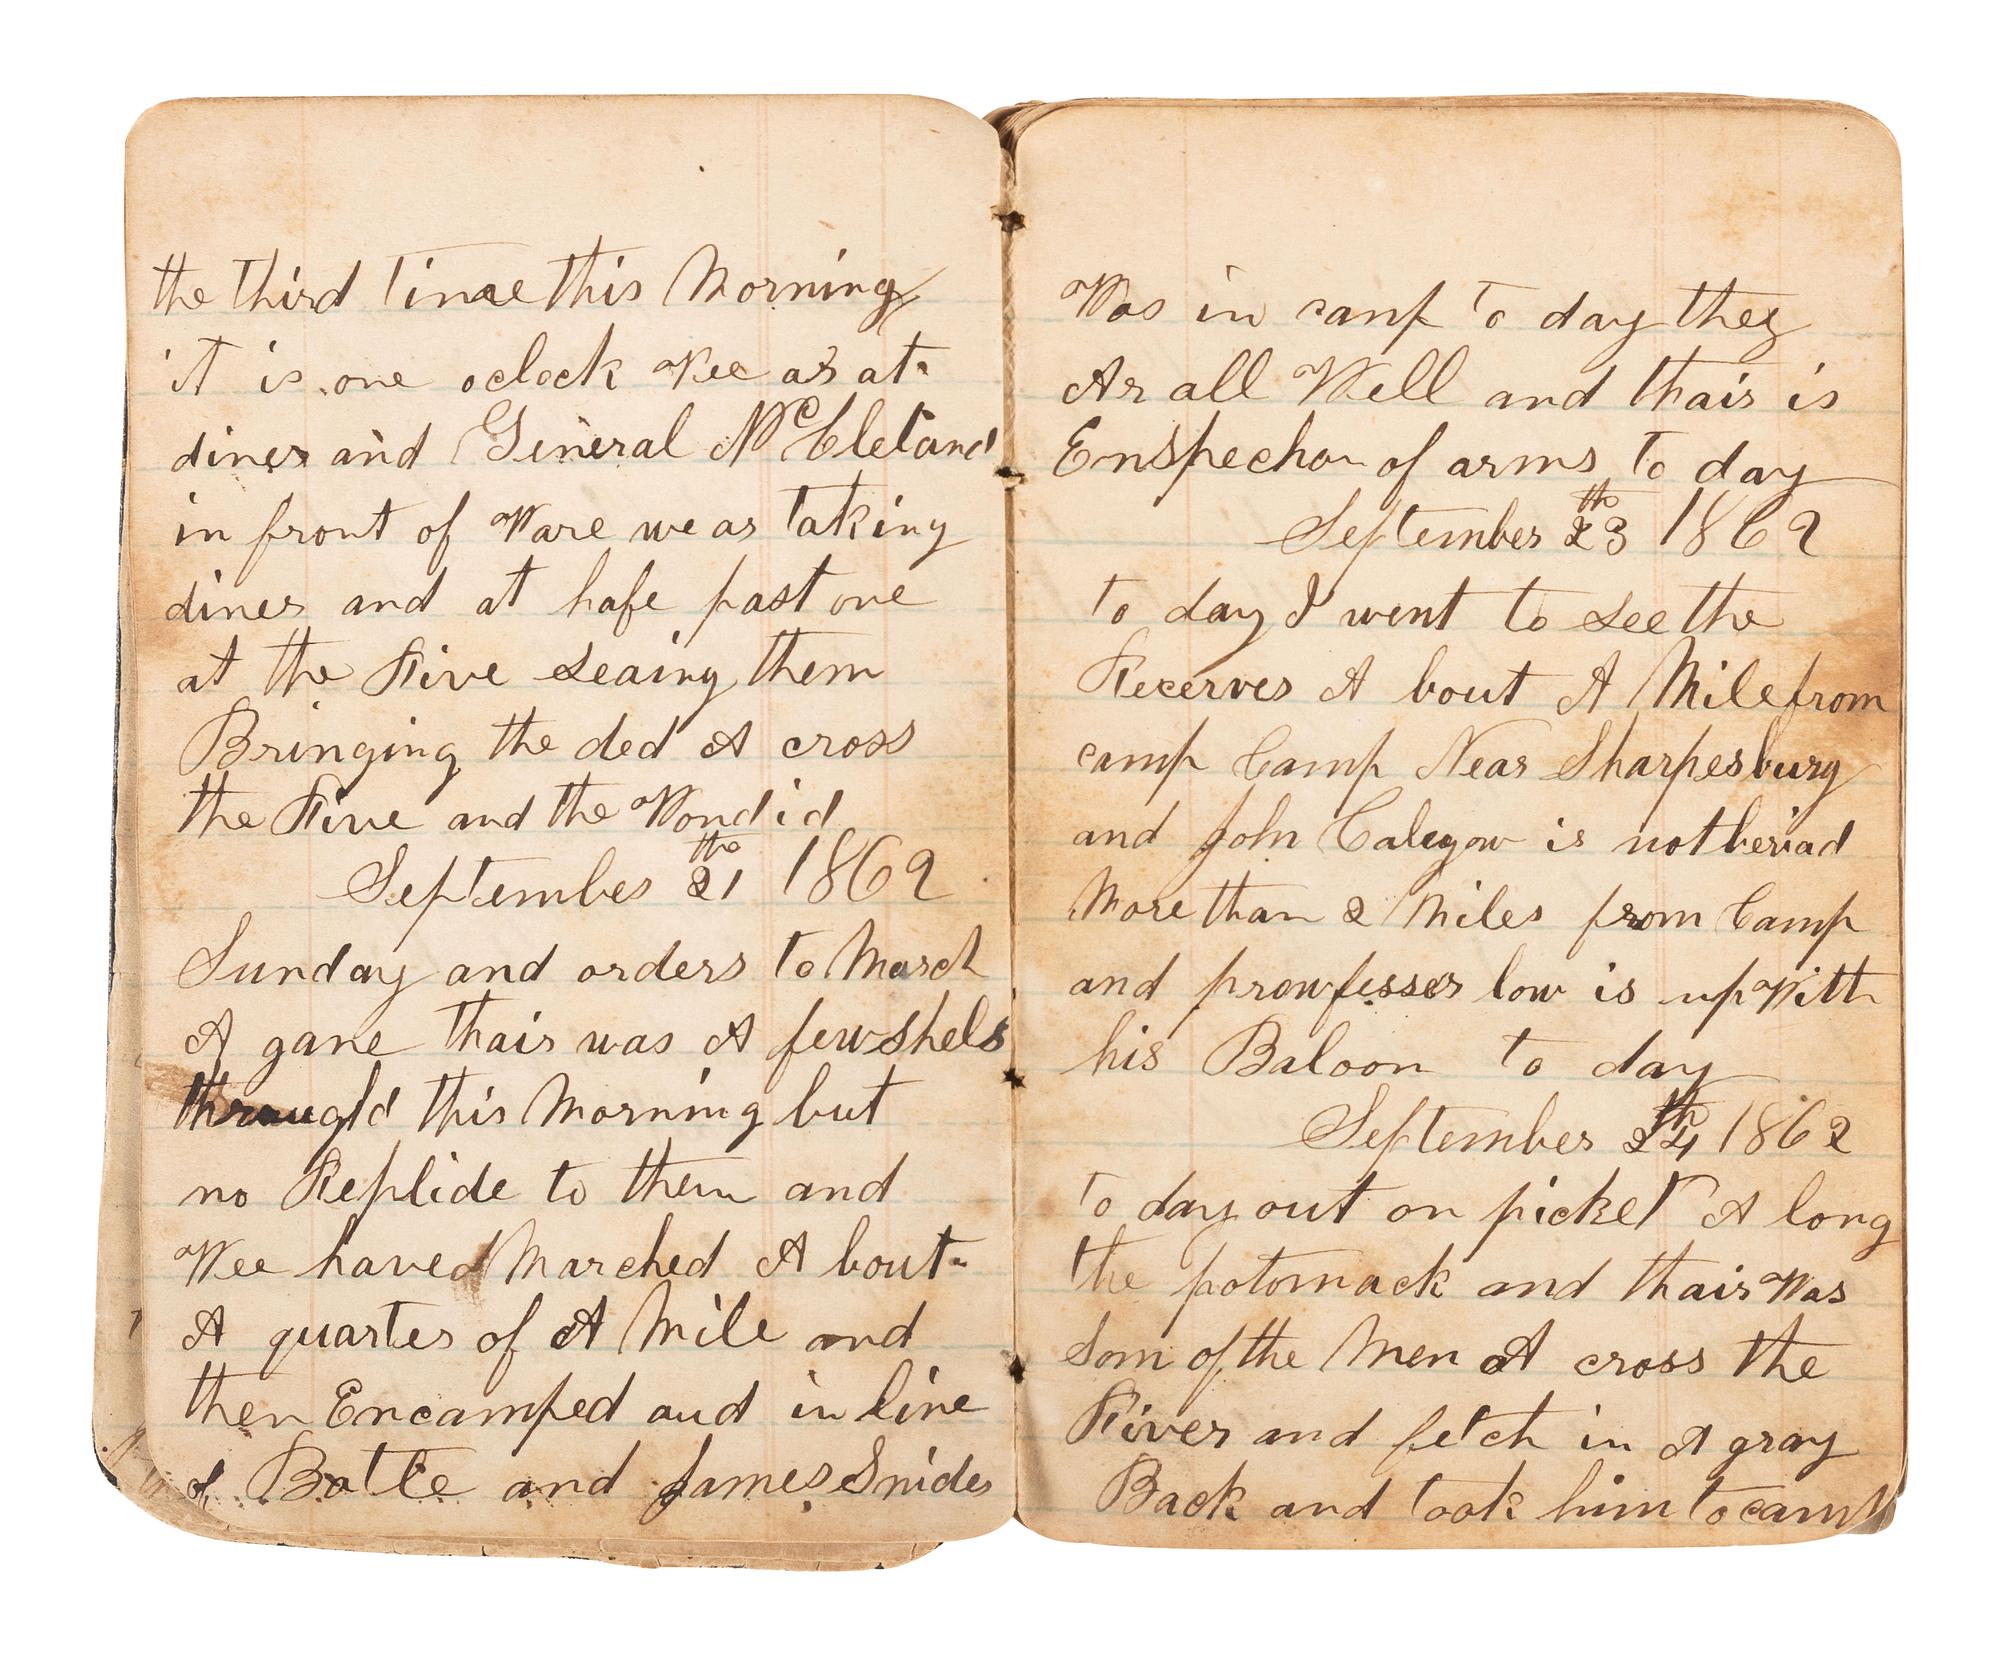 the third time this Morning
it is one oclock Wee ar at
diner and General McCleland
in front of Ware we ar taking
diner and at hafe past one
at the River seaing them
Bringing the ded A cross
the River and the Wondid
September 21 th 1862
Sunday and orders to March
A gane thair was A few shels
througld this Morning but
no Replide to them and
Wee haved Marched A bout
A quarter of A Mile and
then Encamped and in line
of Batle and James Snider
Was in camp to day they
Ar all Well and thair is
Enspechon of arms to day
September 23 th 1862
to day I went to see the
Recerves A bout A Mile from
camp Camp Near Sharpesburg
and John is not beriad
More than 2 Miles from Camp
and prowfesser low is up With
his Baloon to day
September 24 th 1862
to day out on picket A long
the potomack and thair Was
Som of the Men A cross the
River and fetch in A gray
Back and took him to camp